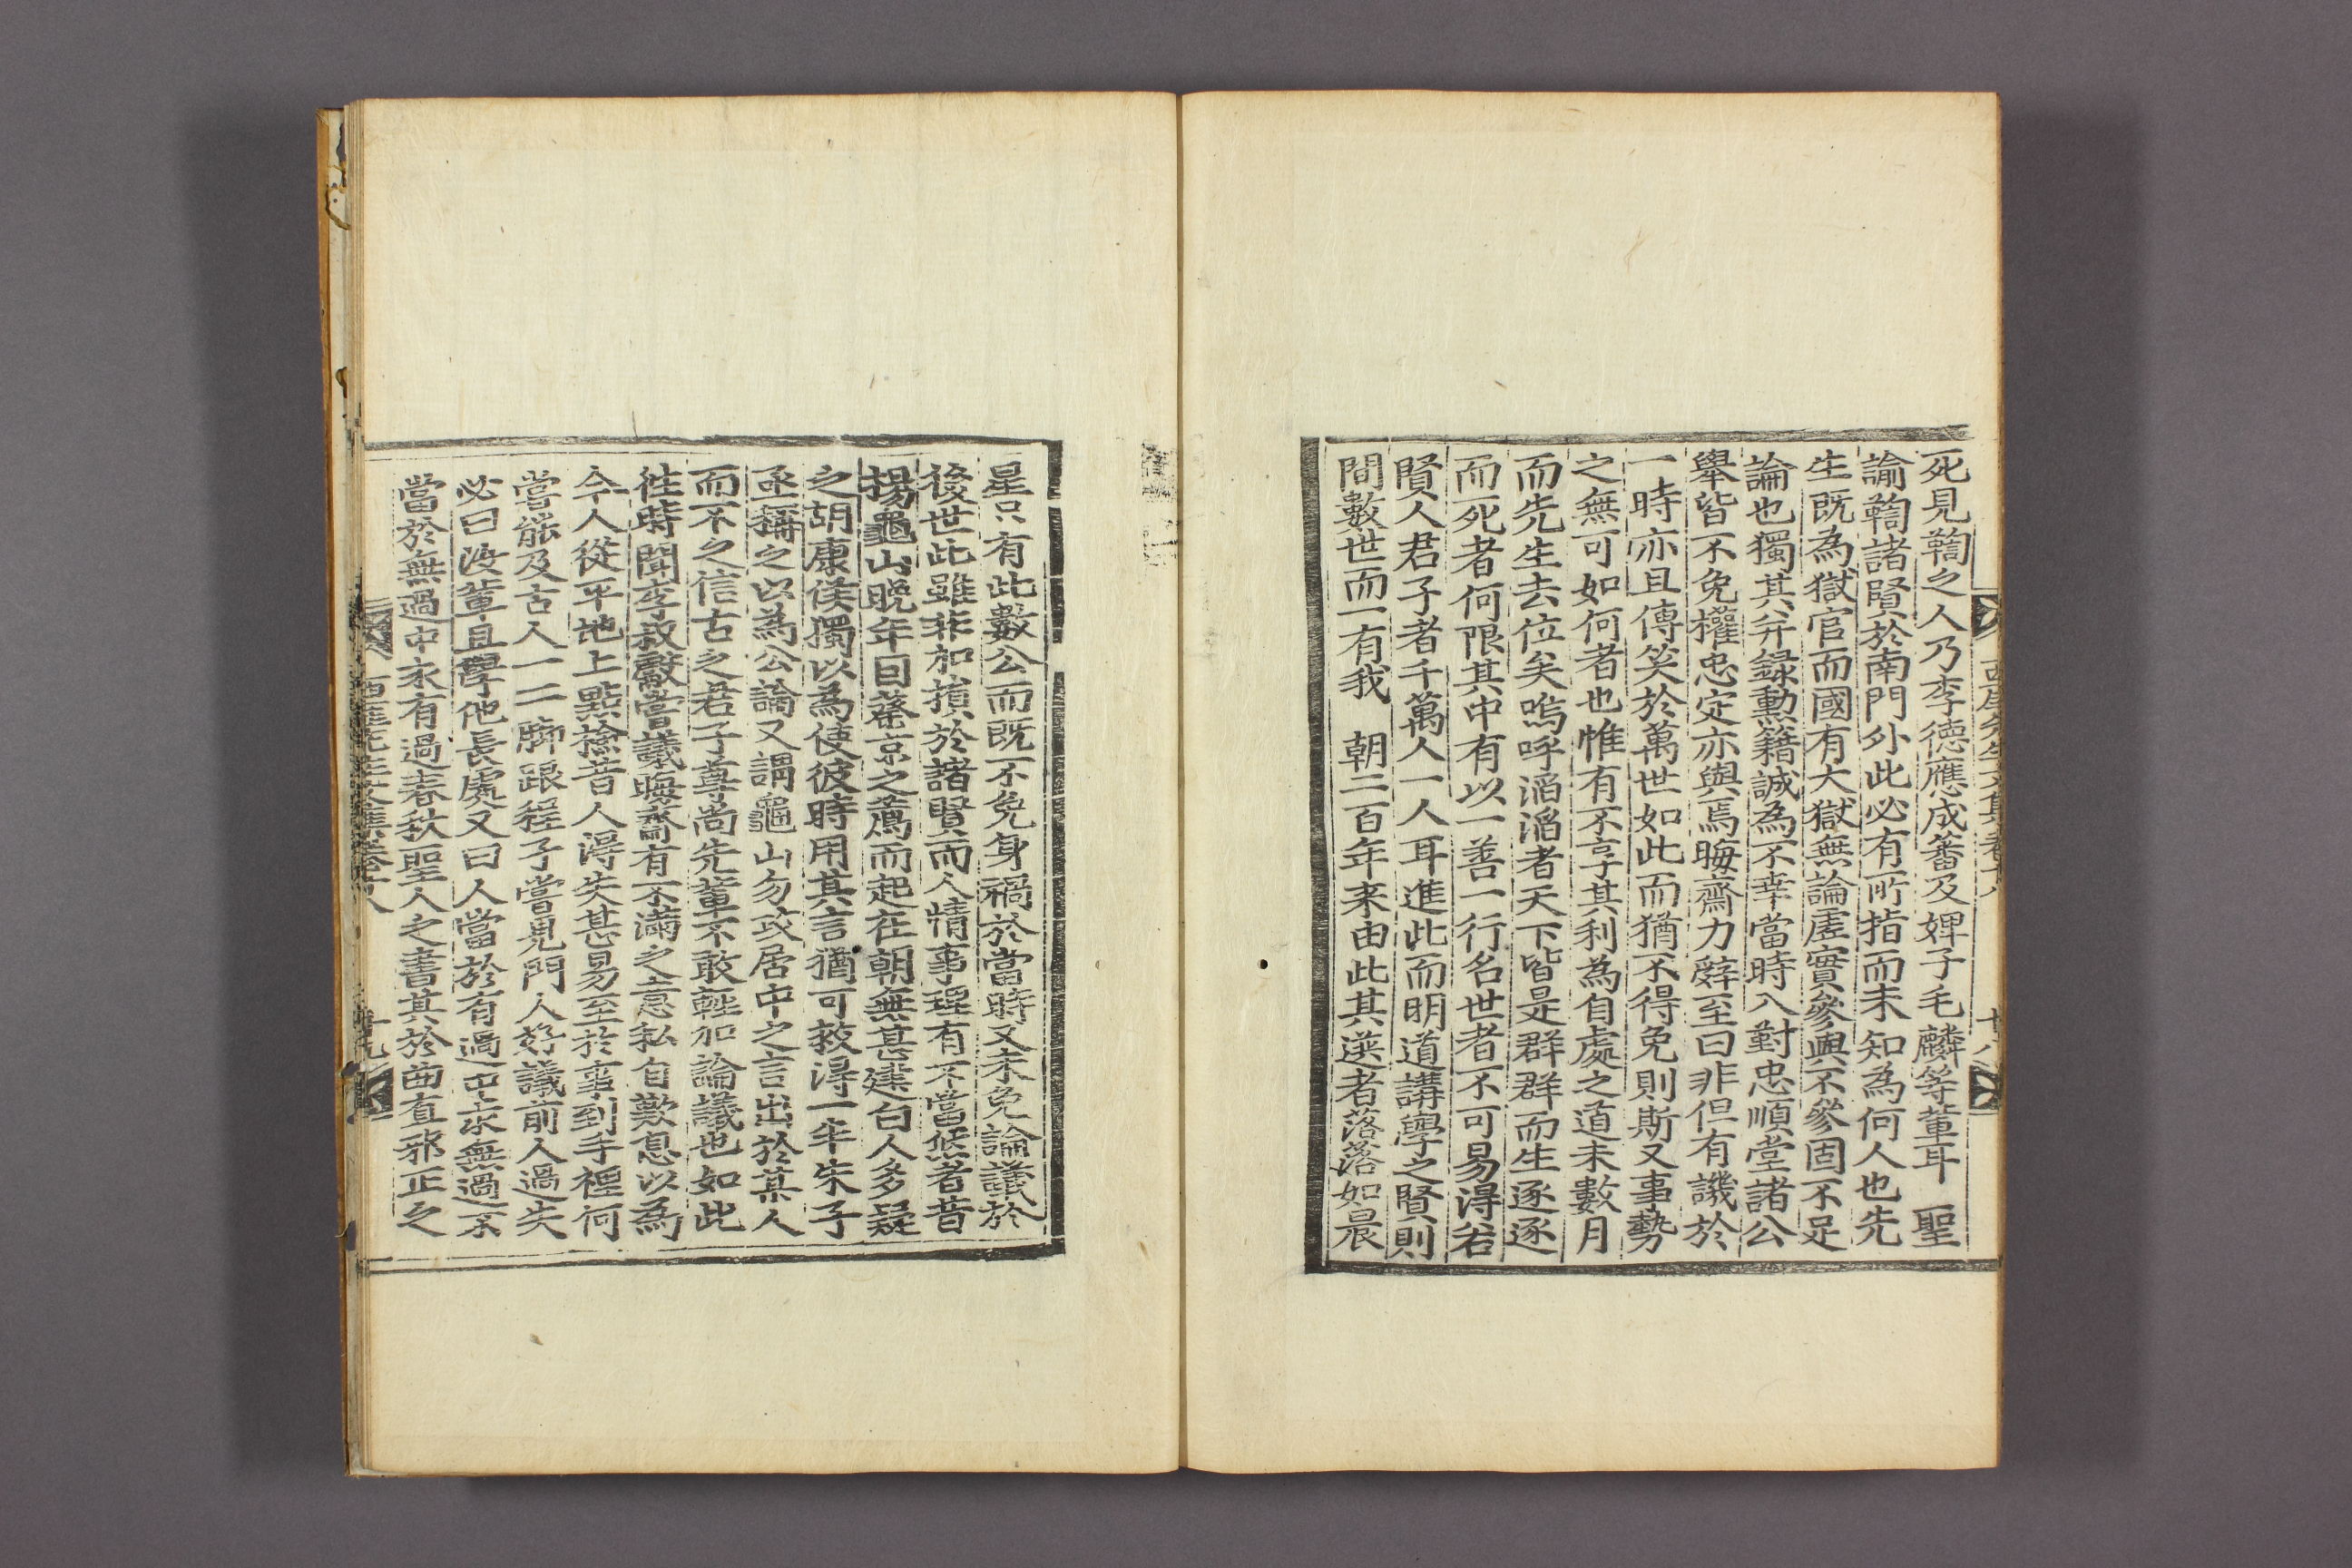 死見鞫之人乃李德應成蕃及婢子毛麟等輩耳 聖
諭鞫諸賢於南門外此必有所指而未知為何人也先
生既為獄官而國有大獄無論虛實參與不參固不足
論也獨其幷錄勳籍誠為不幸當時入對忠順堂諸公
擧皆不免權忠定亦與焉晦齋力辭至曰非但有譏於
一時亦且傳笑於萬世如此而猶不得免則斯又事勢
之無可如何者也惟有不享其利為自處之道未數月
而先生去位矣嗚呼滔滔者天下皆是群群而生逐逐
而死者何限其中有以一善一行名世者不可易得若
賢人君子者千萬人一人耳進此而明道講學之賢則
間數世而一有我 朝二百年来由此其選者落落如晨
西厓先生文集卷十八 廿八
星只有此數公而既不免身禍於當時又未免論議於
後世此雖非加損於諸賢而人情事理有不當然者昔
楊龜山晩年因蔡京之薦而起在朝無甚建白人多疑
之胡康侯獨以為使彼時用其言猶可救得一半朱子
亟稱之以為公論又謂龜山勿攻居中之言出於某人
而不之信古之君子尊尚先輩不敢輕加論議也如此
徃時聞李叔獻嘗議晦齋有不滿之意私自歎息以為
今人從平地上點撿昔人得失甚易至於事到手裡何
嘗能及古人一二脚跟程子嘗見門人好議前人過失
必曰汝輩且學他長處又曰人當於有過中求無過不
當於無過中求有過春秋聖人之書其於曲直邪正之
西厓先生文集卷十八 廿九